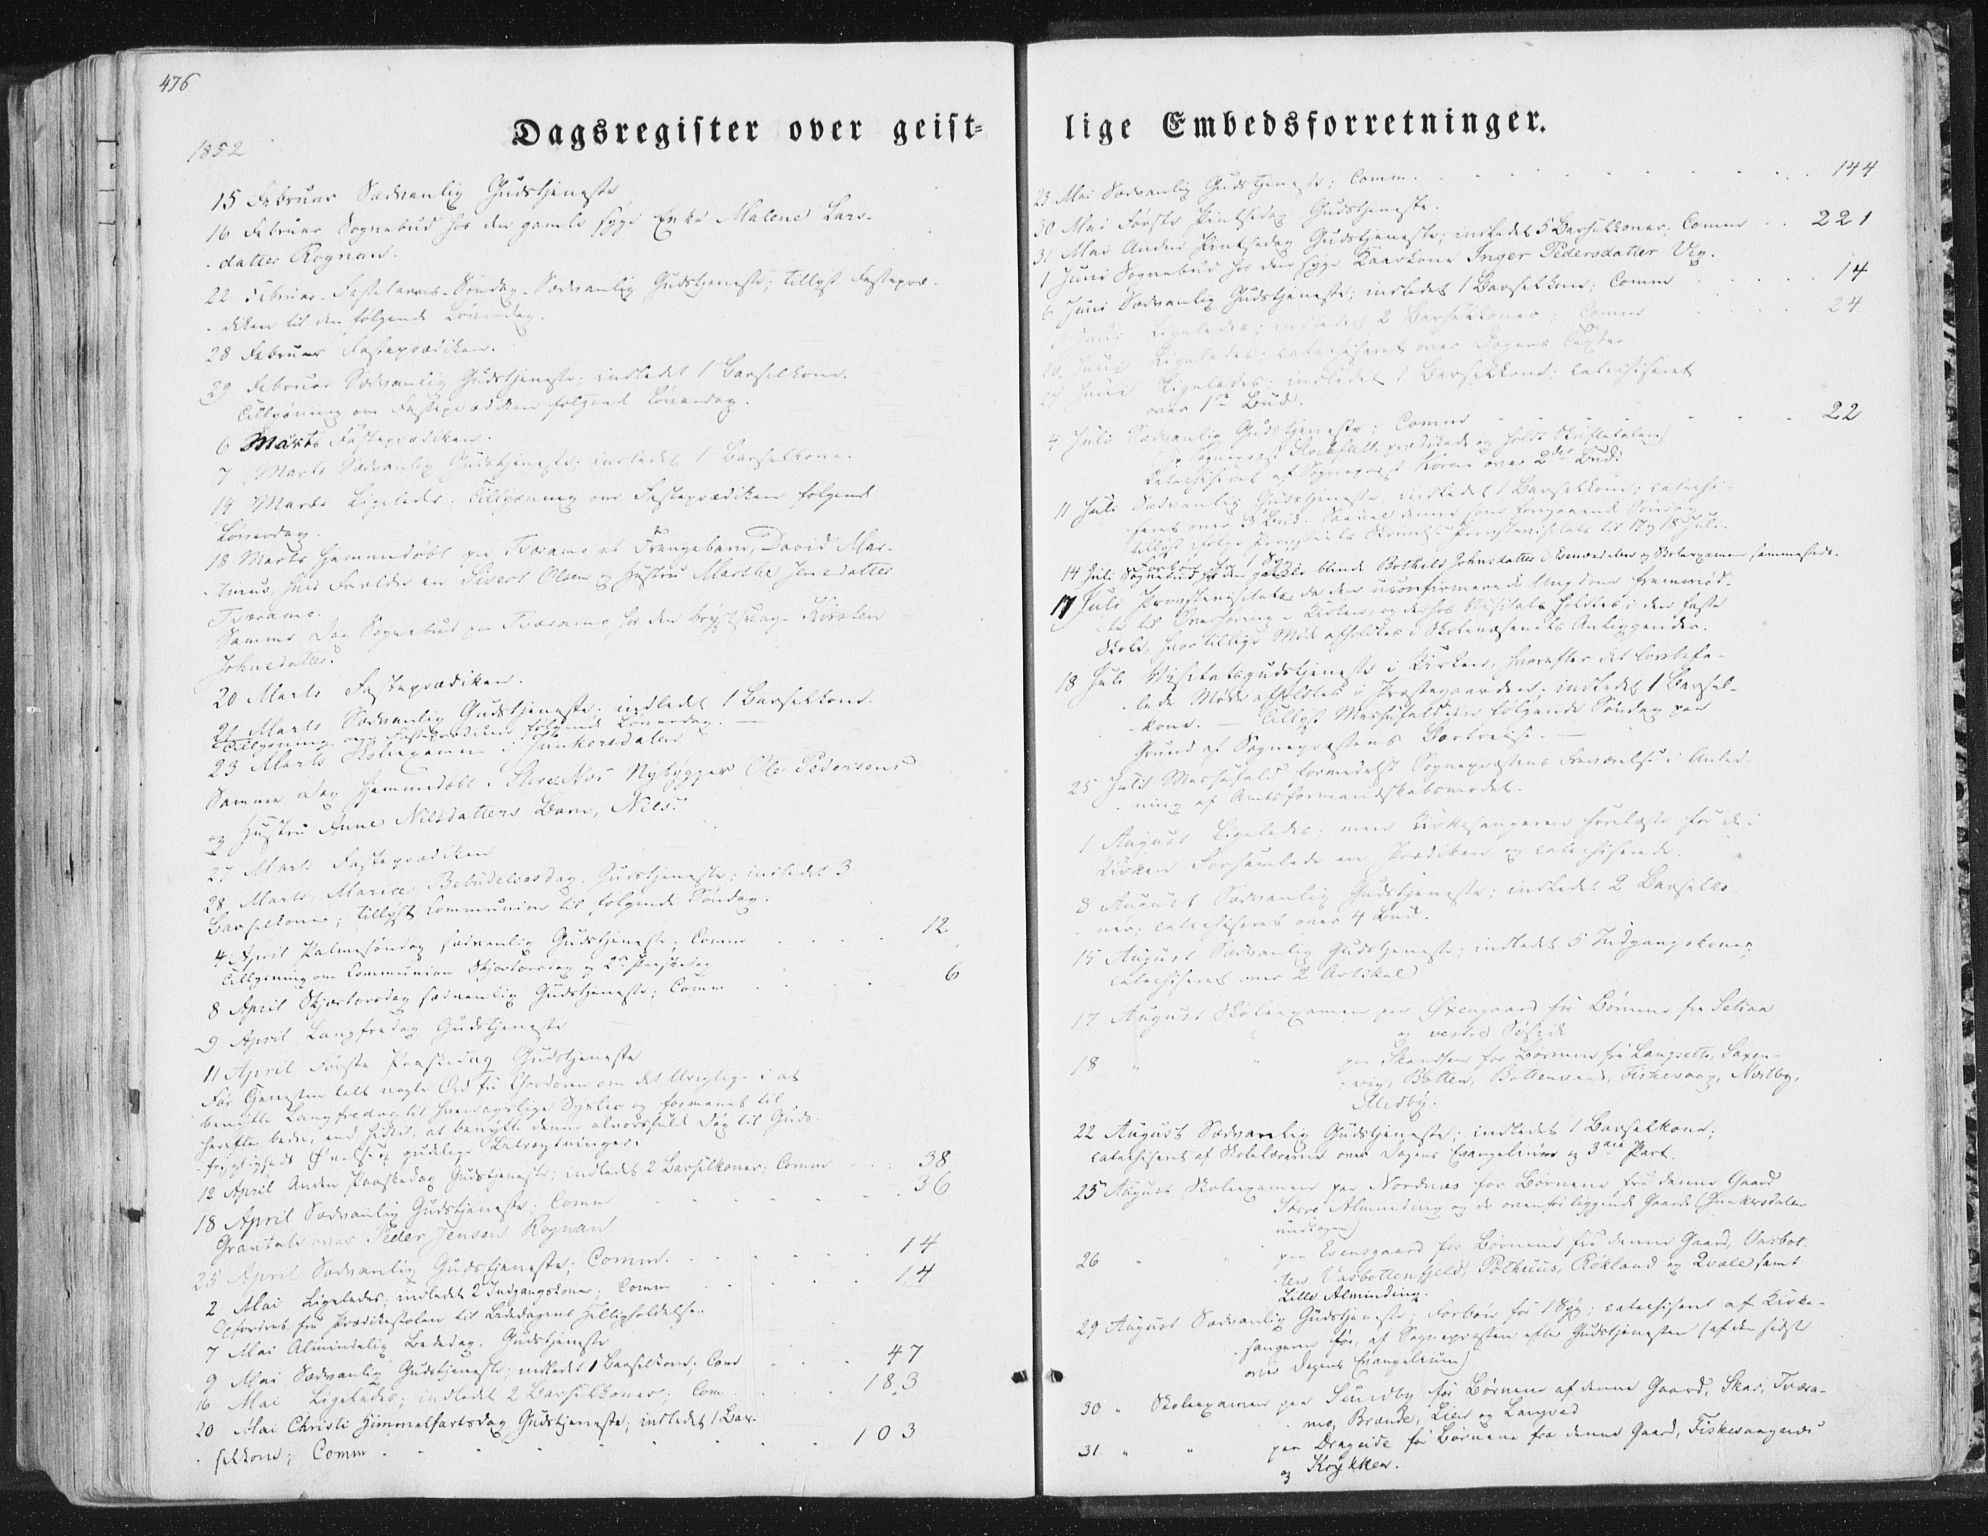 476
Dagsregister over geist-
1852
15 Februar Sædvanlig Gudstjeneste
16 Februar Sognebud hos den gamle syge Enke Malene Lars-
datter Rognan.
22 Februar Fastelavns-Søndag. Sædvanlig Gudstjeneste; tillyst Fastepræ-
diken til den følgende Løverdag.
28 Februar Fasteprædiken.
29 Februar Sædvanlig Gudstjeneste; indledet 1 Barselkone.
Tillysning om Fasteprædiken følgende Løverdag.
6 Marts Fasteprædiken.
7 Marts Sædvanlig Gudstjeneste; indledet 1 Barselkone.
14 Marts Ligeledes. Tillysning om Fasteprædiken følgende
Løverdag.
18 Marts hjemmedøbt paa Tveraamo et Drengebarn, David Mar-
tinus, hvis Forældre ere Sivert Olsen og Hustru Marthe Jensdatter
Tveraamo.
Samme Dag Sognebud paa Tveraamo hos den brystsvage Kirsten
Johnsdatter.
20 Marts Fasteprædiken.
21 Marts Sædvanlig Gudstjeneste; indledet 1 Barselkone.
Tillysning om Fasteprædiken følgende Løverdag.
23 Marts Skoleexamen i Junkersdalen
Samme Dag hjemmedøbt i Storenæs Nybygger Ole Pedersens
og Hustru Anne Nilsdatters Barn, Nils.
27 Marts Fasteprædiken
28 Marts, Mariæ Bebudelsesdag, Gudstjeneste; indledet 3
Barselkoner; tillyst Communion til følgende Søndag.
4 April Palmesøndag sædvanlig Gudstjeneste; Comm 12
Tillysning om Communion Skjærtorsdag og 2den Paaskedag
8 April Skjærtorsdag sædvanlig Gudstjeneste; Comm 6
9 April Langfredag Gudstjeneste
11 April Første Paaskedag Gudstjeneste
Før Tjenesten talt nogle Ord fra Chordøren om det i at
benytte Langfredag til hverdagslige Sysler og formanet til
herefter bedre, end hidtil, at benytte denne alvorsfulde Dag til Guds-
frygtigheds Øvelse og gudelige Betragtninger.
12 April Anden Paaskedag Gudstjeneste; indledet 2 Barselkoner; Comm 38
18 April Sædvanlig Gudstjeneste; Comm 36
Gravtale over Peder Jensen Rognan
25 April Sædvanlig Gudstjeneste; Comm. 14
2 Mai Ligeledes; indledet 2 Indgangskoner; Comm 14
Opfordret fra Prædikestolen til Bededagens Helligholdelse.
7 Mai Almindelig Bededag. Gudstjeneste
9 Mai Sædvanlig Gudstjeneste; indledet 1 Barselkone; Com 47
16 Mai Ligeledes; indledet 2 Barselkoner; Com 183
20 Mai Christi Himmelfartsdag Gudstjeneste; indledet 1 Bar-
selkone; Comm 103
lige Embedsforretninger.
23 Mai Sædvanlig Gudstjeneste; Comm. 144
30 Mai Første Pintsedag Gudstjeneste.
31 Mai Anden Pintsedag Gudstjeneste; indledet 5 Barselkoner; Comm 221
1 Juni Sognebud hos den syge Kaarkone Inger Pedersdatter Vig.
6 Juni Sædvanlig Gudstjeneste; indledet 1 Barselkone; Comm 14
Juni Ligeledes; indledet 2 Barselkoner; Comm 24
20 Juni Ligeledes; catechiseret over Dagens Texter
27 Juni Ligeledes; indledet 1 Barselkone; catechiseret
over 1ste Bud.
4 Juli Sædvanlig Gudstjeneste; Comm 22
Sognepræst Stockfleth prædikede og holdt Skriftetalen)
Catechiseret af Sognepræst Koren over 2det Bud.
11 Juli Sædvanlig Gudstjeneste; indledet 1 Barselkone; catechi-
seret over 3 Bud. denne som foregaaende Søndag
tillyst ifølge Provstens Skrivelse Provstevisitats til 17 og 18 Juli.
Forbøn for 1 Syg
14 Juli Sognebud hos den gamle blinde Bothild Johnsdatter i Evensdalen og Skoleexamen sammesteds.
17 Juli Provstevisitats, da den uconfirmerede Ungdom fremmød-
te til Overhøring i Kirken, og derhos Visitats holdtes i den faste
Skole, hvor tillige Møde afholdtes i Skolevæsenets Anliggender.
18 Juli Visitatsgudstjeneste i Kirken, hvorefter det lovbefa-
lede Møde afholdtes i Præstegaarden; indledet 1 Barsel-
kone. — Tillyst Messefald den følgende Søndag paa
Grund af Sognepræstens Bortreise. —
25 Juli Messefald formedelst Sognepræstens Fraværelse i Anled-
ning af Amtsformandskabsmødet.
1 August Ligeledes; men Kirkesangeren forelæste for de i
Kirken Forsamlede en Prædiken og catechiserede.
8 August Sædvanlig Gudstjeneste; indledet 2 Barselko-
ner; catechiseret over 4 Bud.
15 August Sædvanlig Gudstjeneste; indledet 5 Indgangskoner;
catechiseret over 2 Artikel
17 August Skoleexamen paa Øxengaard for Børnene fra Setsaa
og vestre Søside
18 " " paa Skandsen for Børnene fra Langsetter, Saxen-
vig, Botten, Bottenvand, Fiskevaag, Næstby,
Medby.
22 August Sædvanlig Gudstjeneste; indledet 1 Barselkone;
catechiseret af Skolelæreren over Dagens Evangelium og 3die Part.
25 August Skoleexamen paa Nordnæs for Børnene fra denne Gaard
Store Almindning og de ovenfor liggende Gaarde (Junkersdalen
undtagen)
26 " " paa Evensgaard for Børnene fra denne Gaard, Vasbot-
ten, Vasbottenfjeld, Pothuus, Røkland og Qvale, samt
Lille Alminding.
29 August Sædvanlig Gudstjeneste; Forbøn for 1 Syg; catechiseret af Kirke-
sangeren før, af Sognepræsten efter Gudstjenesten (af den sidste
over Dagens Evangelium)
30 " Skoleexamen paa Sundby for Børnene af denne Gaard, Skar, Tveraa-
mo, Brænde, Lien og Langved
31. " " paa Drageide for Børnene fra denne Gaard, Fiskevaagnæs
og Kojekken.